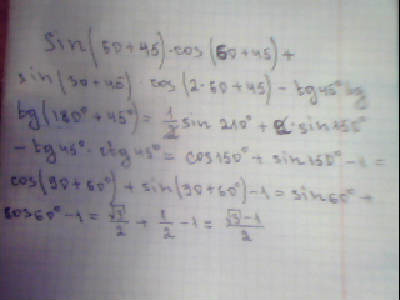 sin(50+45)·cos(60+45)+
sin(90+45)·cos(2·60+45)-tg45° tg
tg(180°+45°) = 1/2 sin 210° + 2·sin150°
-tg45°·ctg45° = cos150° + sin150° - 1 =
cos(90+60°) + sin(90+60°) - 1 = sin60° +
cos60° - 1 = √3/2 + 1/2 - 1 = √3-1/2